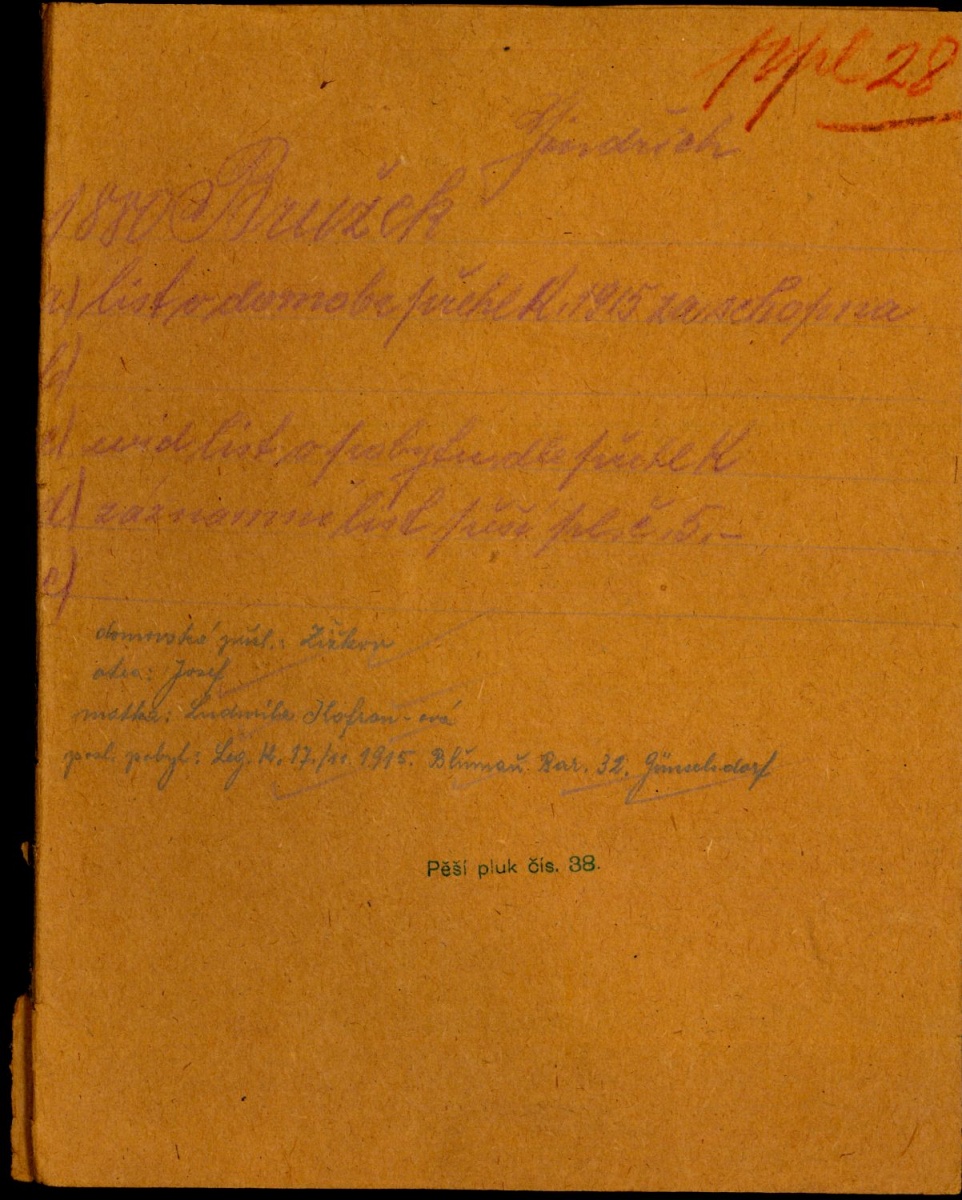 ppl 28
Jindřich
1880 Bružek
a) list o domob. přehl K. 1915 za schopna
b)
c) evid list o pobytu dle přehl K
d) záznamní list pěší pl. č. 5.-
e)
domovská přísl.: Žižkov
otec: Josef
matka: Ludmila
posl. pobyt: Leg. K. 17./11. 1915. Blumau Bar. 32. Günselsdorf
Pěší pluk čís. 38.